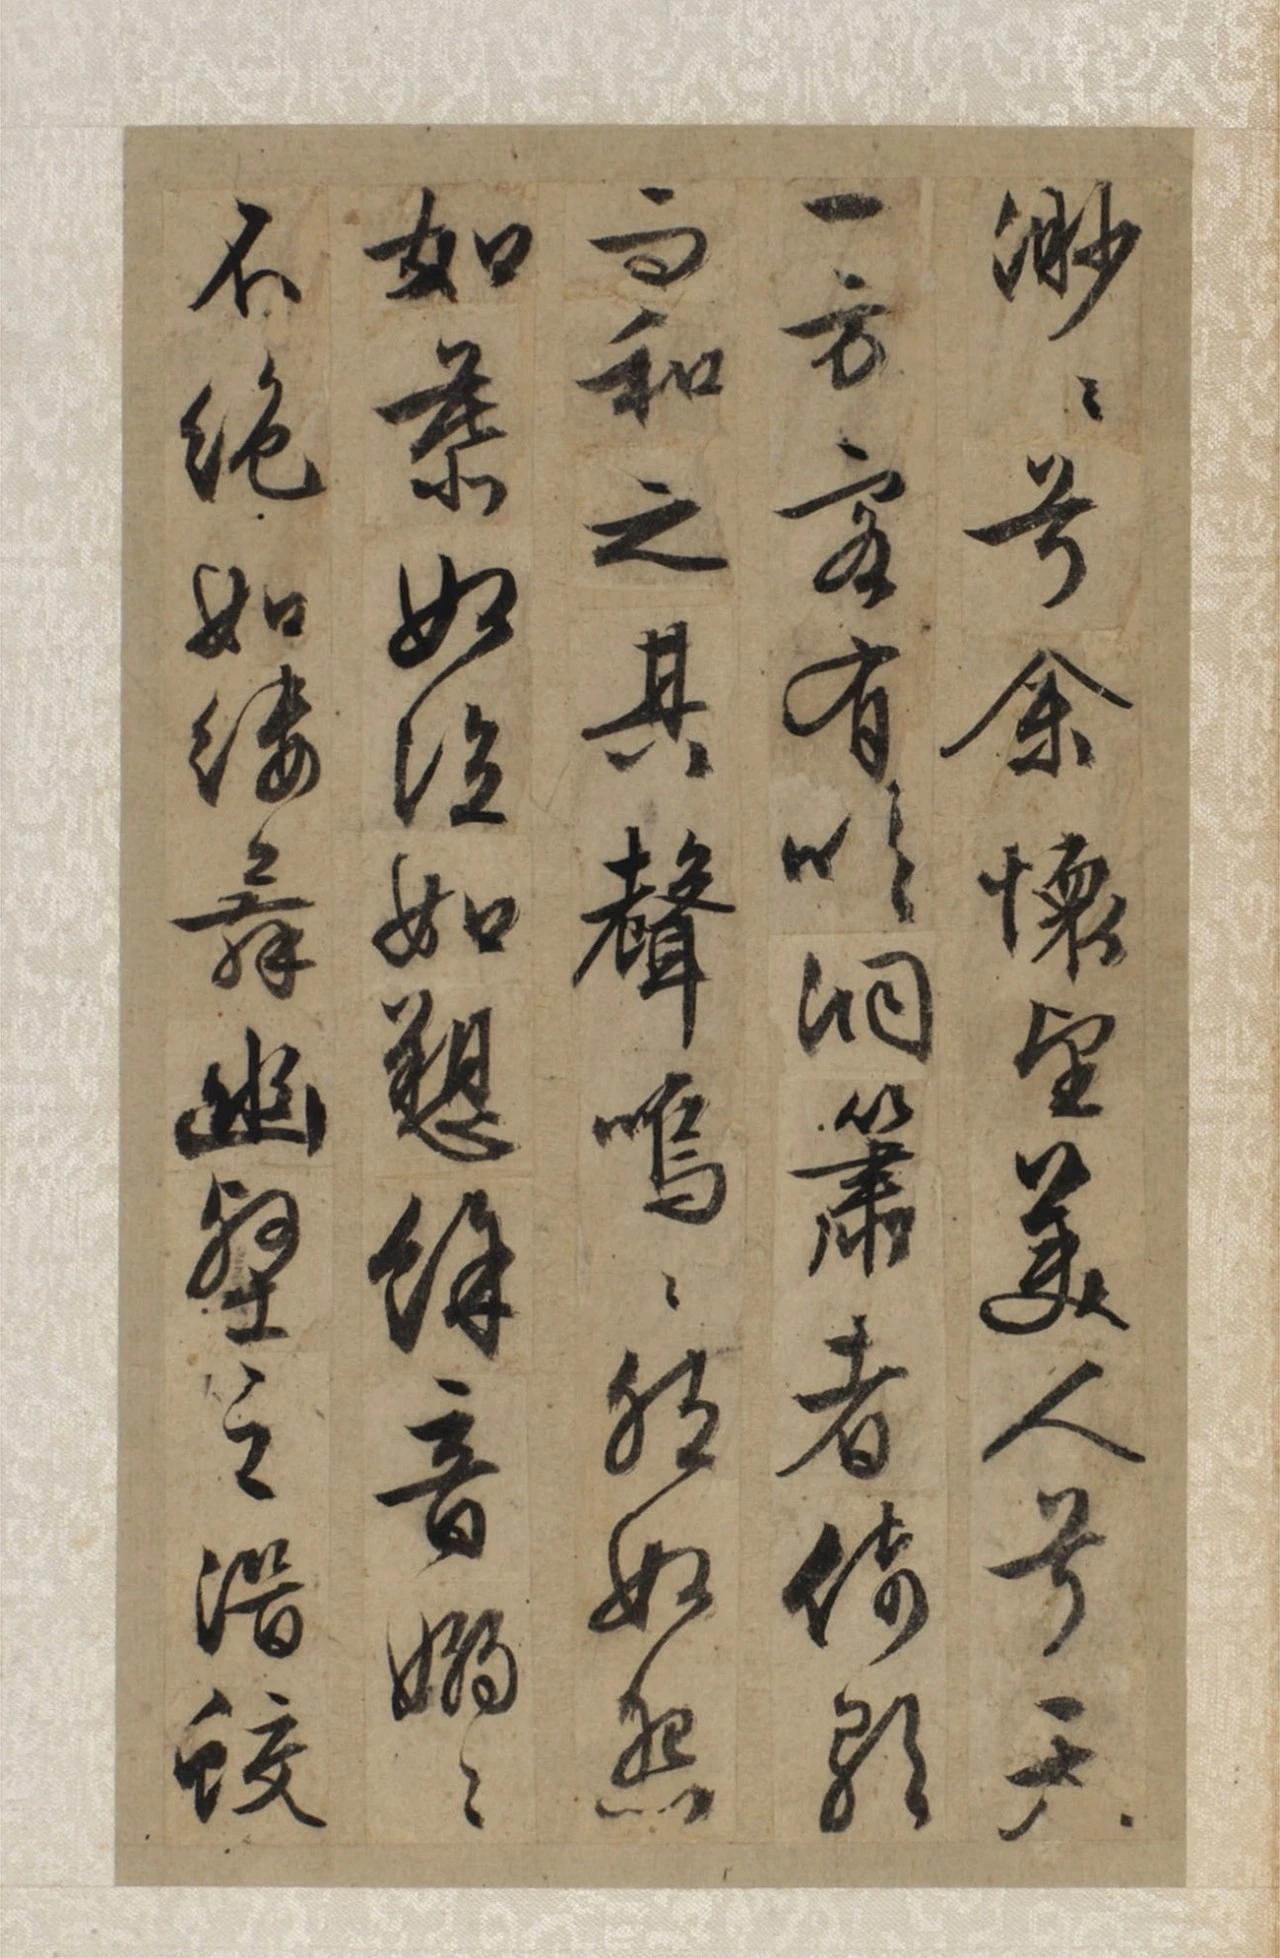 渺〻兮余懷望美人兮天
一方客有吹洞簫者倚歌
而和之其聲嗚〻然如怨
如慕如泣如愬餘音嫋〻
不絕如縷舞幽壑之潛蛟